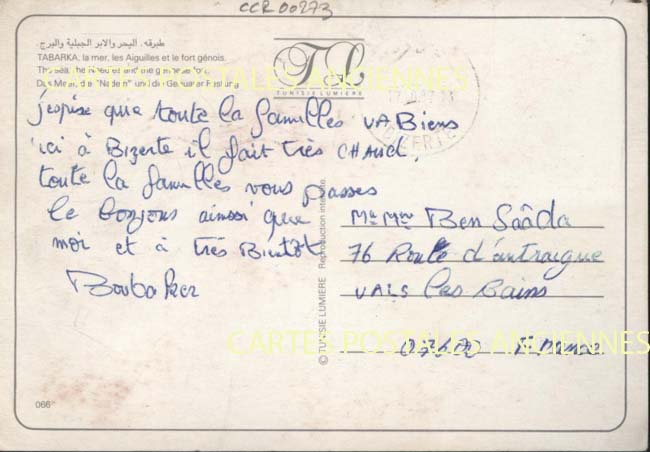 CCR 00273
طبرقة. البحر والابر الجبلية والبرج.
TABARKA, la mer, les Aiguilles et le fort génois.
The sea, the and the genoese fort.
Das Meer, die "Nadeln" und die Genueser Festung
TUNISIE LUMIERE
CARTES POSTALES ANCIENNES
BIZERTE
j'espère que toute la familles VA Biens
ici à Bizerte il fait très CHAUD.
toute la familles vous passes
le bonjons ainsi que
moi et à très Bientôt
Boubaker
Mr Mme Ben Saâda
76 Route d'antraigue
VALS les Bains
07600 France
© TUNISIE LUMIERE Reproduction interdite
CARTES POSTALES ANCIENNES
066